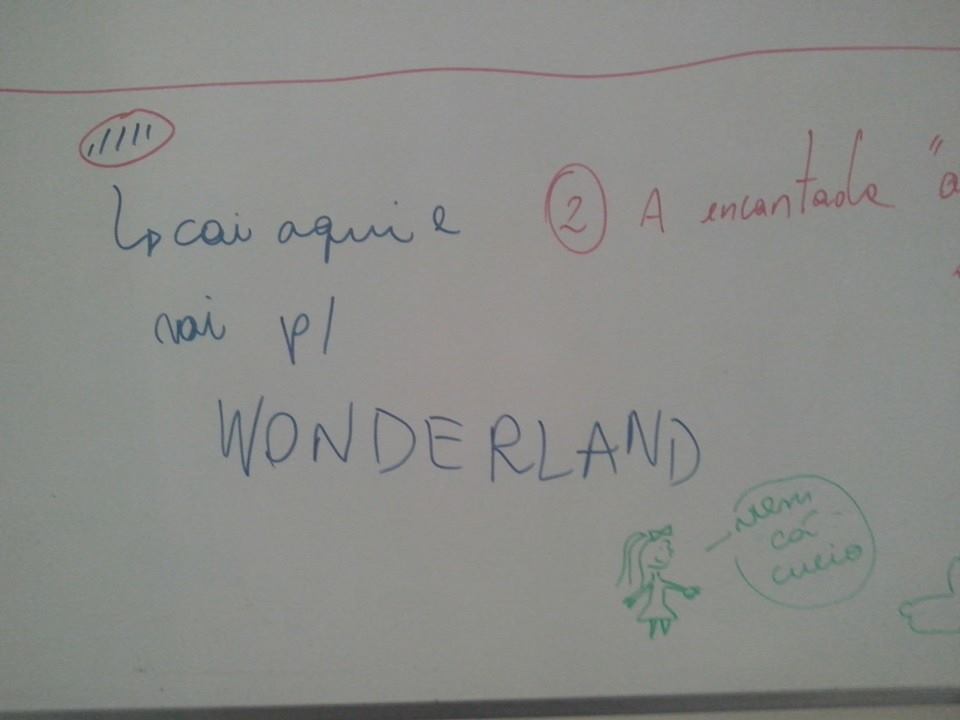 cai aqui e
vai p/
WONDERLAND
2 A encantada "a
vem
cá
cueio